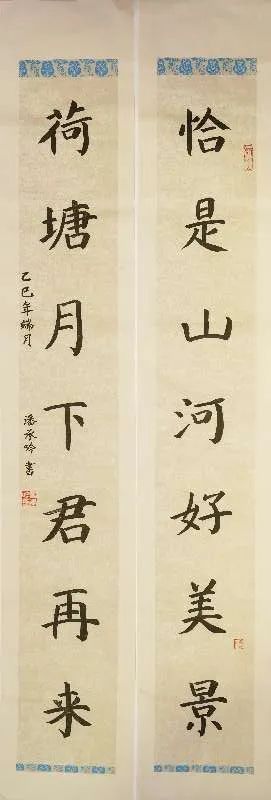 恰是山河好美景
荷塘月下君再来
乙巳年端月
潘承吟书